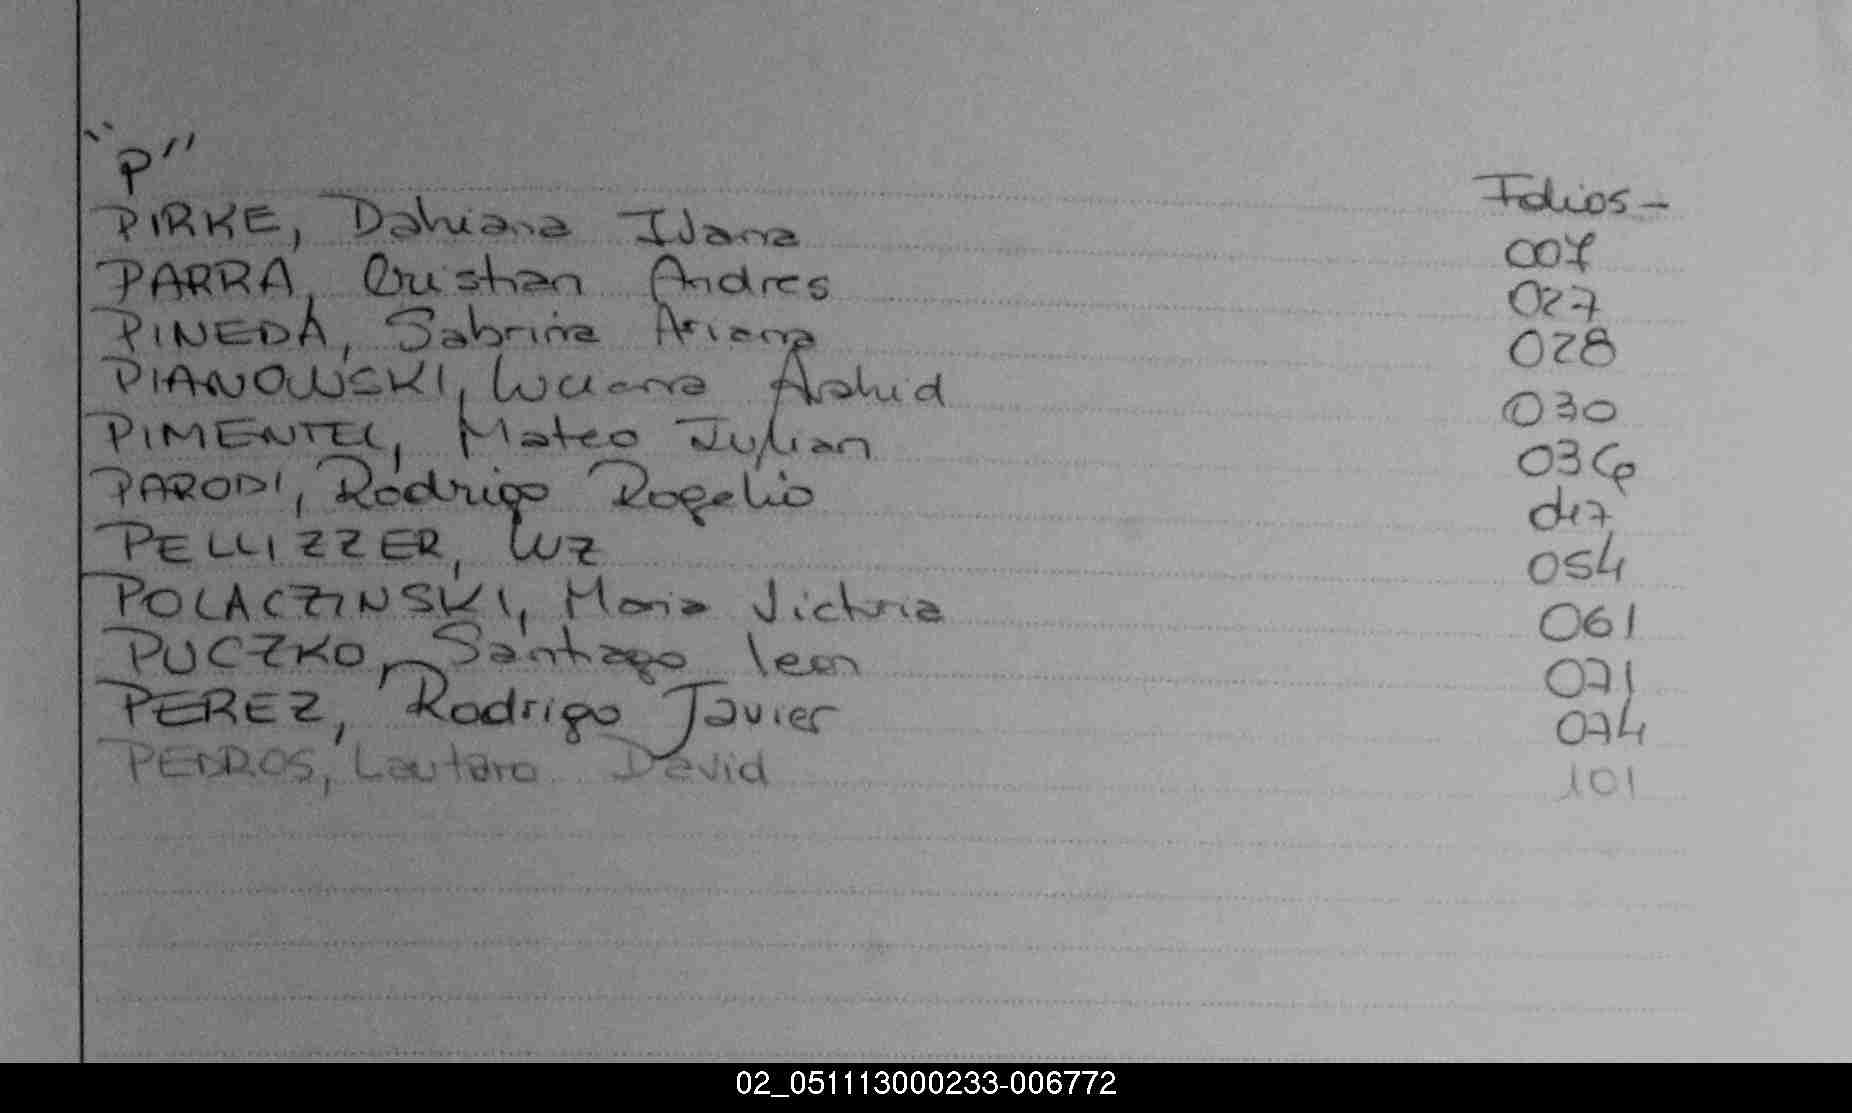 "P"
Folios-
PIRKE, Dahiana Ivana 007
PARRA, Cristian Andres 027
PINEDA, Sabrina Ariana 028
PIANOWSKI, Luciana Arahid 030
PIMENTEL, Mateo Julian 036
PARODI, Rodrigo Rogelio 047
PELLIZZER, Luz 054
POLACZINSKI, Maria Victoria 061
PUCZKO, Santiago Leon 071
PEREZ, Rodrigo Javier 074
PEDROS, Lautaro David 101
02_051113000233-006772